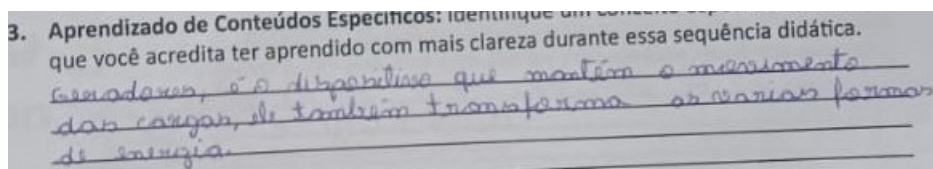 3. Aprendizado de Conteúdos Específicos: Identifique um conceito
que você acredita ter aprendido com mais clareza durante essa sequência didática.
Geradores, é o dispositivo que mantém o movimento
das cargas, ele também transforma as varias formas
de energia.